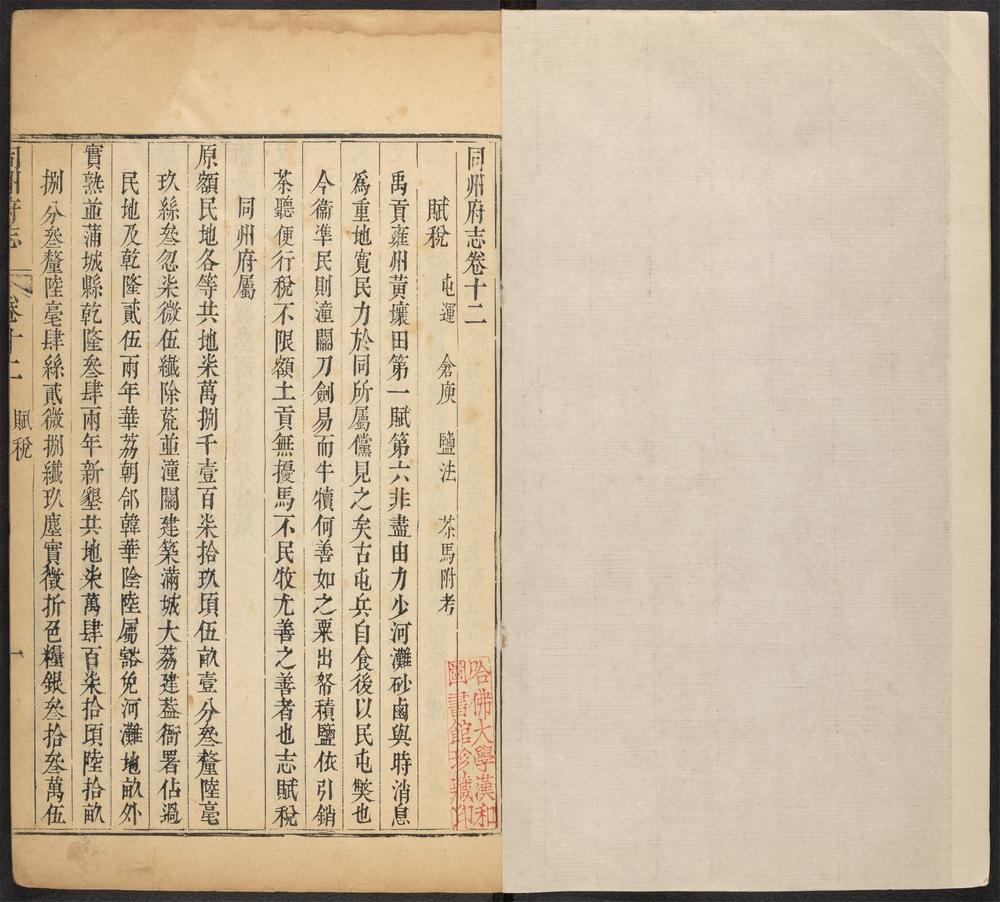 同州府志卷十二
賦稅 屯運 倉庾 鹽法 茶馬附考
禹貢雍州黃壤田第一賦第六非盡由力少河灘砂鹵與時消息
爲重地寬民力於同所屬儻見之矣古屯兵自食後以民屯獘也
今衞準民則潼關刀劍易而牛犢何善如之粟出帑積鹽依引銷
茶聽便行稅不限額土貢無擾馬不民牧尤善之善者也志賦稅
同州府屬
原額民地各等共地柒萬捌千壹百柒拾玖頃伍畝壹分叄釐陸毫
玖絲叄忽柒微伍纖除荒並潼關建築滿城大荔建葢衙署佔過
民地及乾隆貳伍兩年華荔朝郃韓華陰陸屬豁免河灘地畝外
實熟並蒲城縣乾隆叄肆兩年新墾共地柒萬肆百柒拾頃陸拾畝
捌分叄釐陸毫肆絲貳微捌纖玖塵實徵折色糧銀叄拾叄萬伍
同州府志 卷十二 賦稅 一
哈佛大學漢和圖書館珍藏印